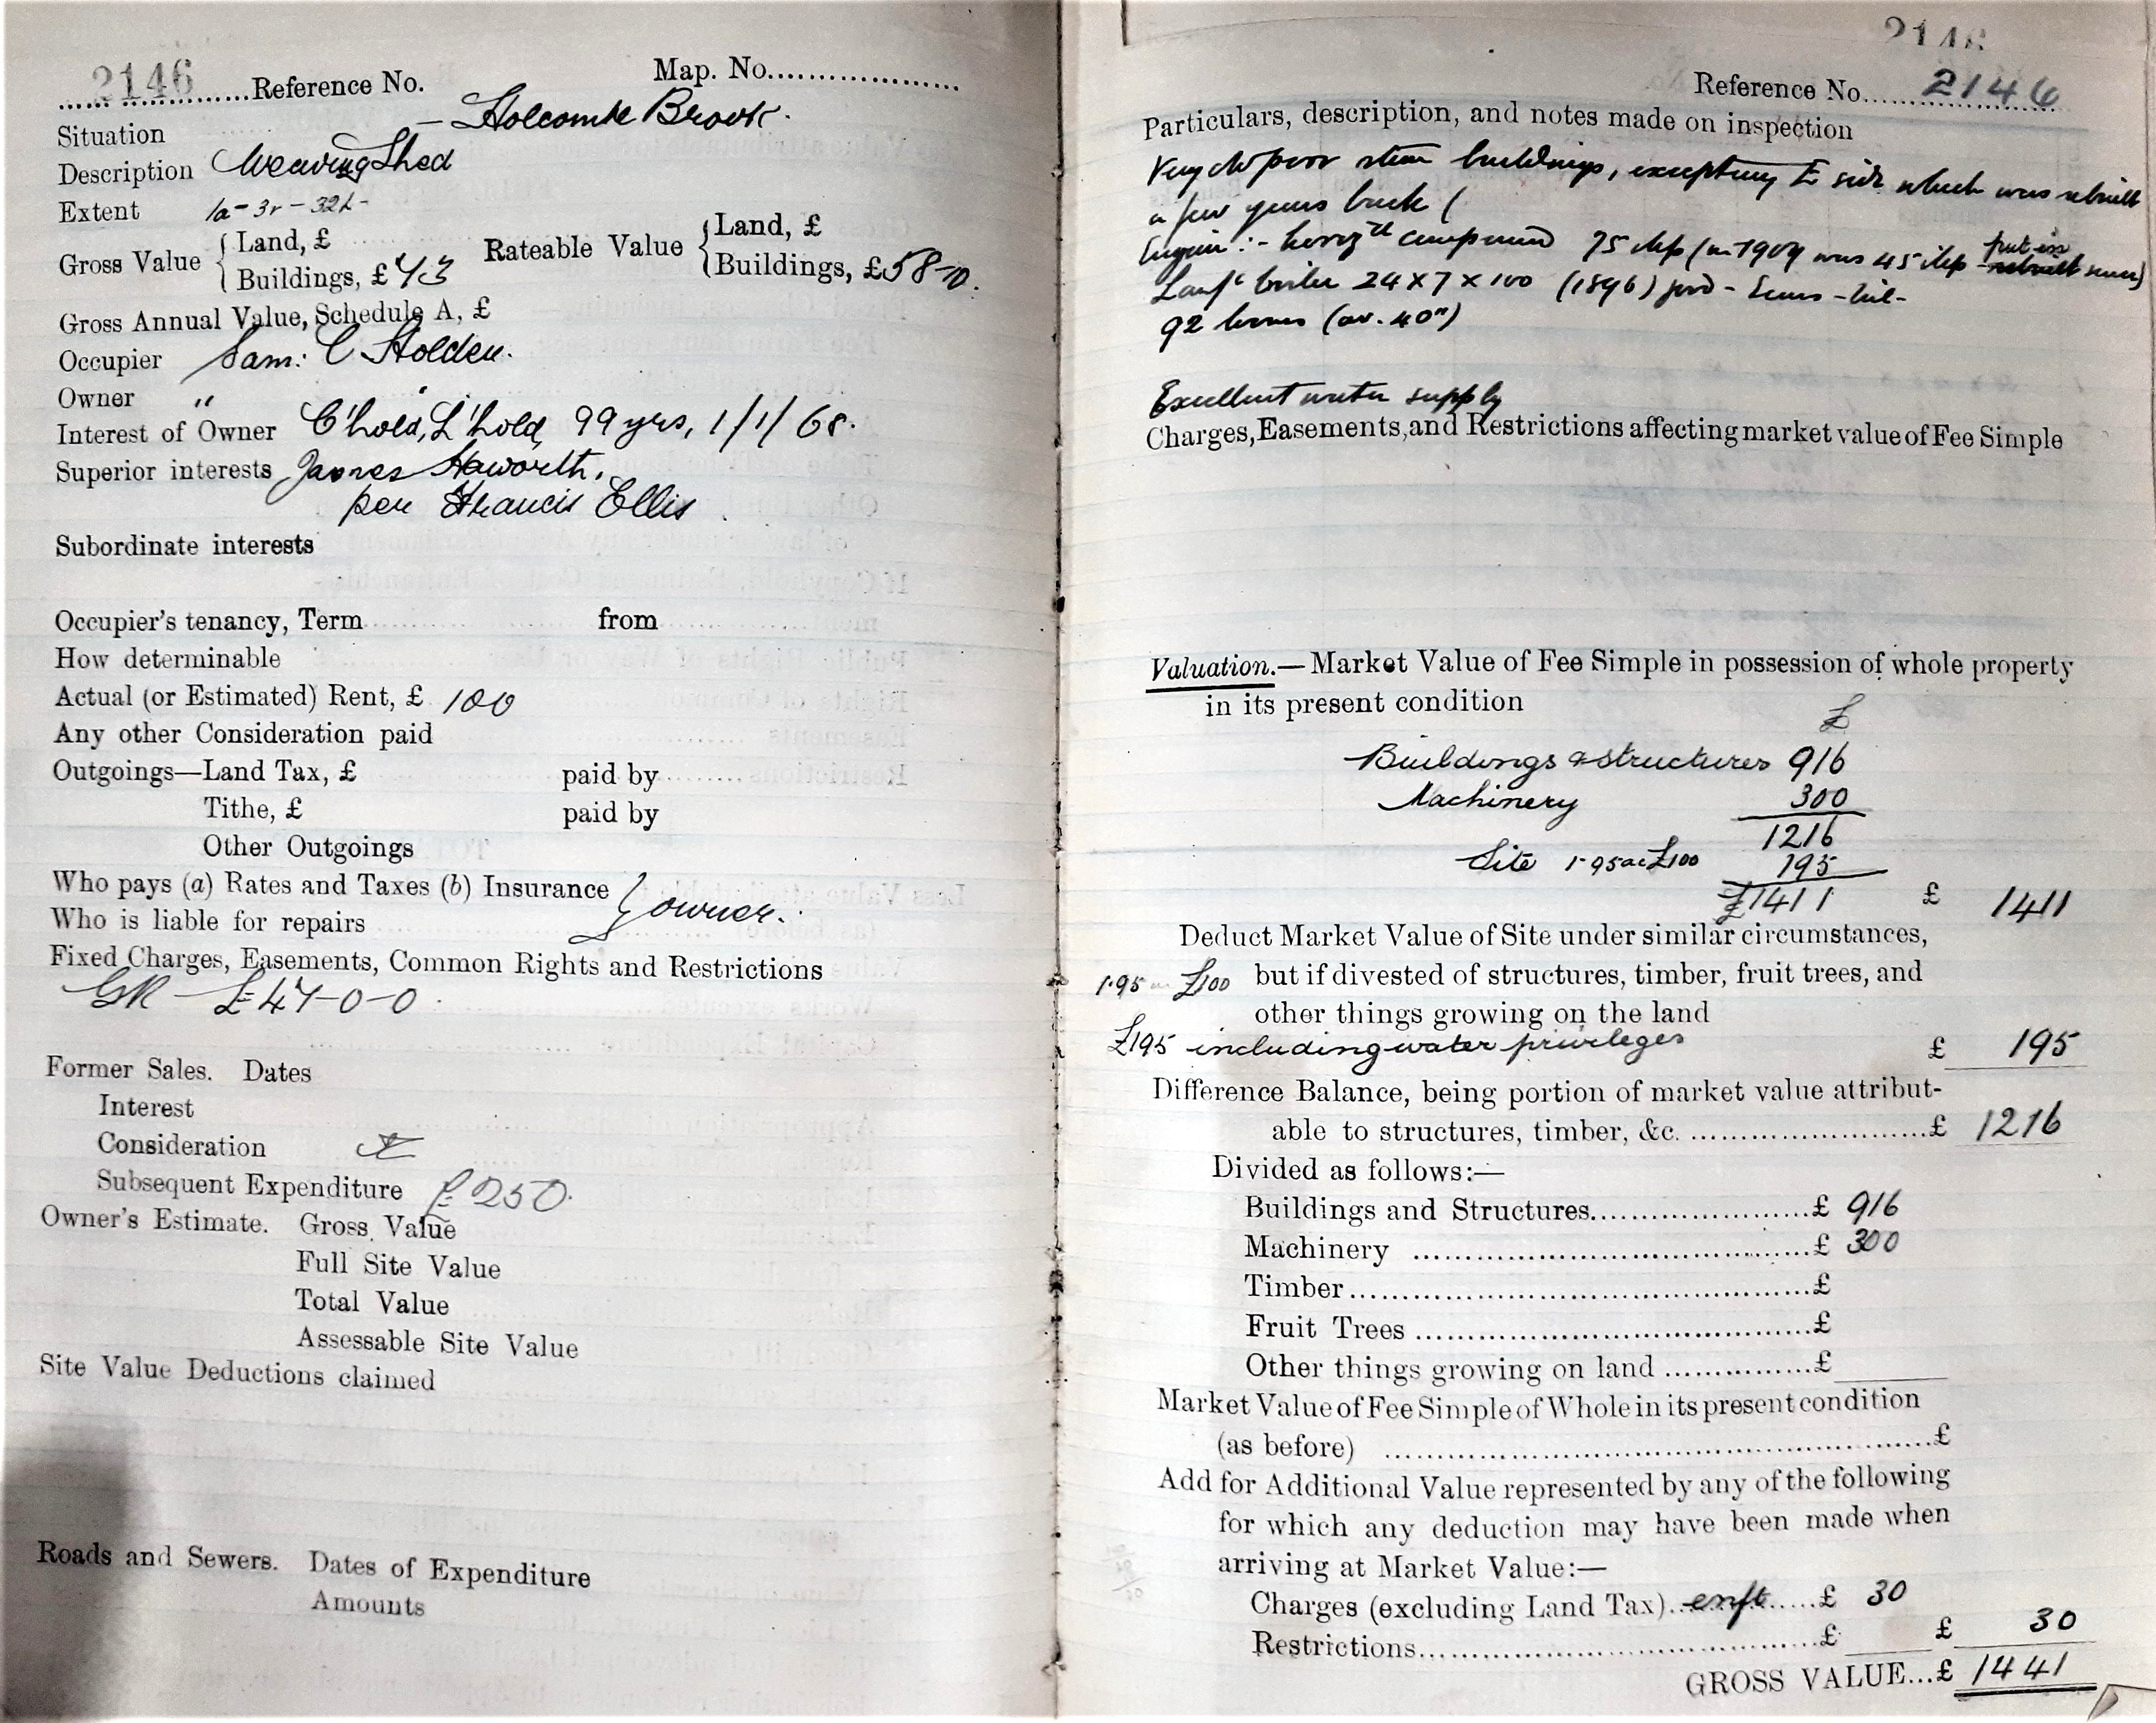 2146 Reference No. Map. No.
Situation – Holcombe Brook.
Description Weaving Shed
Extent 1a - 3r - 32
Gross Value { Land, £
Buildings, £ 73
Rateable Value { Land, £
Buildings, £58-10.
Gross Annual Value, Schedule A, £
Occupier Sam: C Holden.
Owner "
Interest of Owner C'hold, L'hold, 99 yrs, 1/1/68.
Superior interests James Haworth,
per Francis Ellis
Subordinate interests
Occupier's tenancy, Term from
How determinable
Actual (or Estimated) Rent, £ 100
Any other Consideration paid
Outgoings—Land Tax, £ paid by
Tithe, £ paid by
Other Outgoings
Who pays (a) Rates and Taxes (b) Insurance } owner.
Who is liable for repairs
Fixed Charges, Easements, Common Rights and Restrictions
GR - £47-0-0
Former Sales. Dates
Interest
Consideration
Subsequent Expenditure £250.
Owner's Estimate. Gross Value
Full Site Value
Total Value
Assessable Site Value
Site Value Deductions claimed
Roads and Sewers. Dates of Expenditure
Amounts
2146
Reference No. 2146
Particulars, description, and notes made on inspection
Very poor stone buildings, excepting E side which was rebuilt
a few years back (
Engine :- horizl compound 75 ihp (in 1909 was 45 ihp put in
Lancs boiler 24 x 7 x 100 (1896) good
92 looms (av. 40")
Excellent water supply
Charges, Easements, and Restrictions affecting market value of Fee Simple
Valuation.—Market Value of Fee Simple in possession of whole property
in its present condition
£
Buildings & structures 916
Machinery 300
1216
Site 1.95 ac £100 195
£1411 £ 1411
Deduct Market Value of Site under similar circumstances,
1.95 £100 but if divested of structures, timber, fruit trees, and
other things growing on the land
£195 including water privileges £ 195
Difference Balance, being portion of market value attribut-
able to structures, timber, &c. £ 1216
Divided as follows:—
Buildings and Structures £ 916
Machinery £ 300
Timber £
Fruit Trees £
Other things growing on land £
Market Value of Fee Simple of Whole in its present condition
(as before) £
Add for Additional Value represented by any of the following
for which any deduction may have been made when
arriving at Market Value:—
Charges (excluding Land Tax) enft £ 30
Restrictions £ £ 30
GROSS VALUE...£ 1441